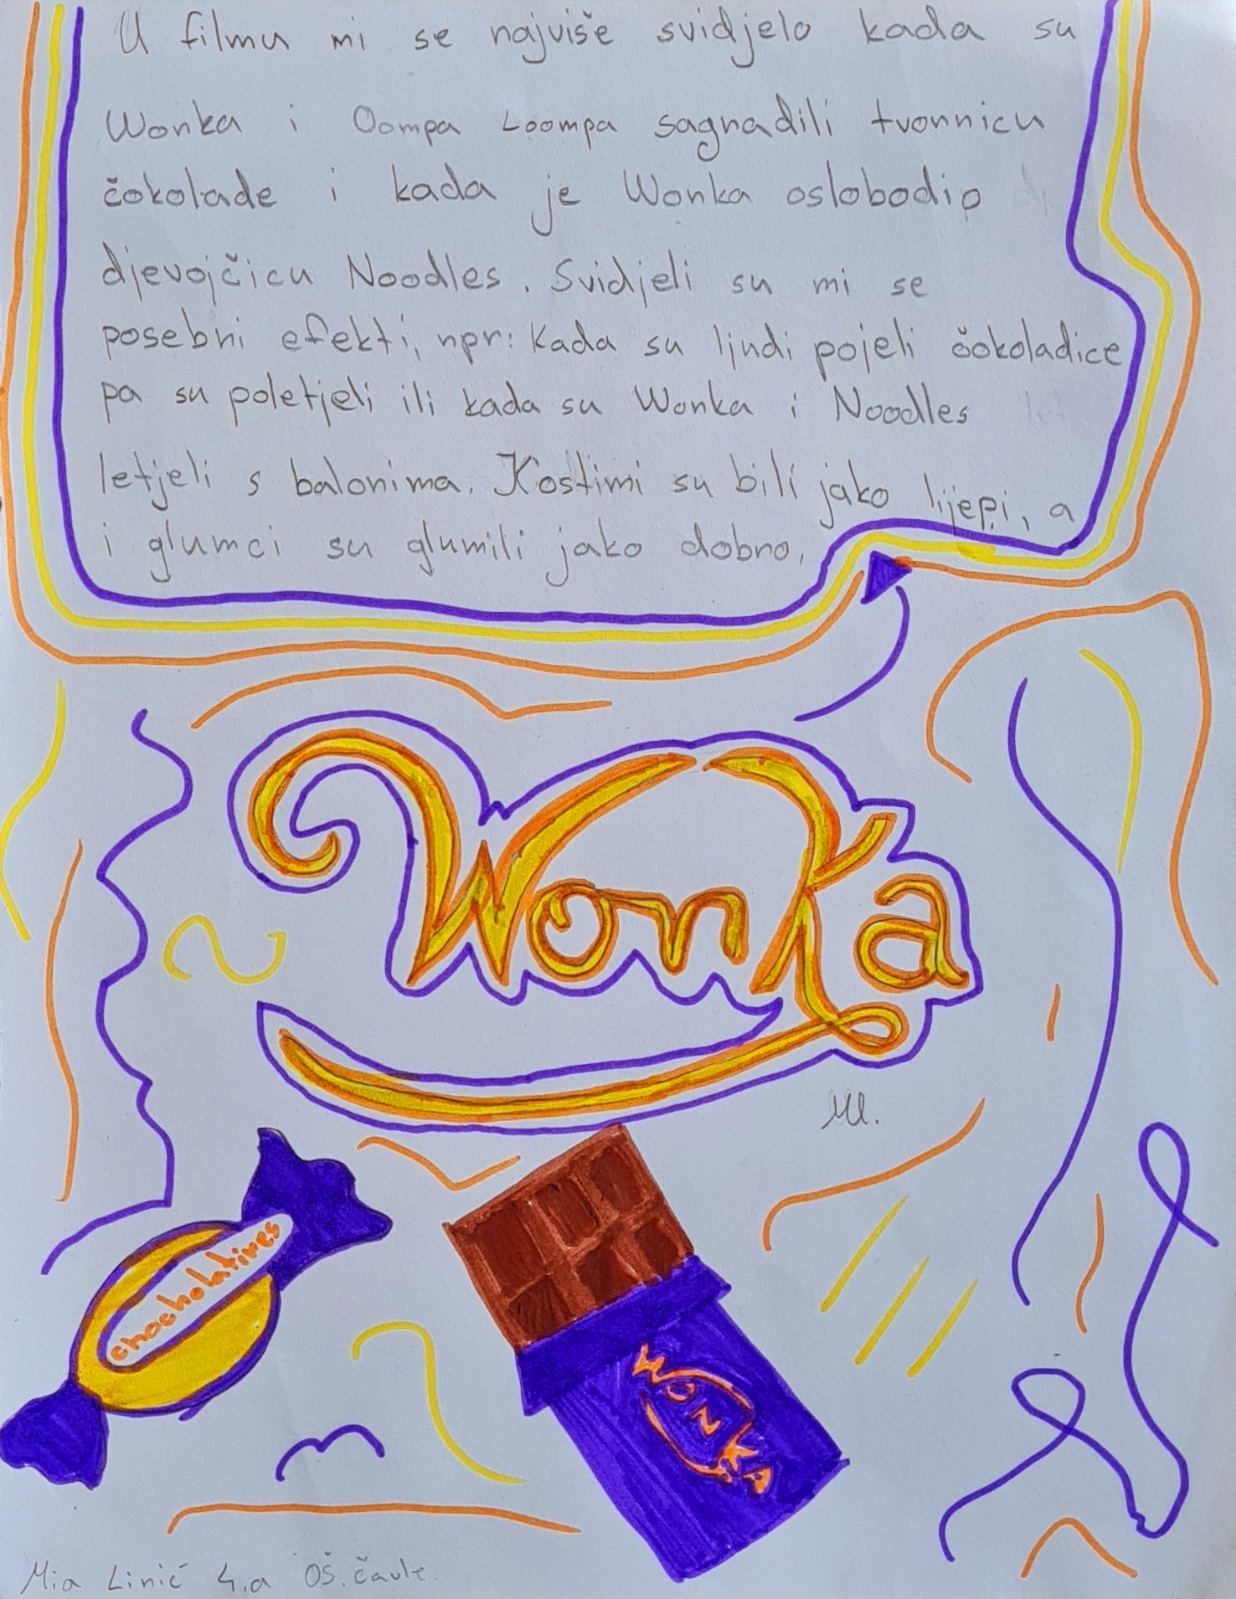 U filmu mi se najviše svidjelo kada su
Wonka i Oompa Loompa sagradili tvornicu
čokolade i kada je Wonka oslobodio
djevojčicu Noodles. Svidjeli su mi se
posebni efekti, npr: kada su ljudi pojeli čokoladice
pa su poletjeli ili kada su Wonka i Noodles
letjeli s balonima. Kostimi su bili jako lijepi, a
i glumci su glumili jako dobro.
Wonka
chocholatives
WONKA
Mia Linić 4.a OŠ. čavle.